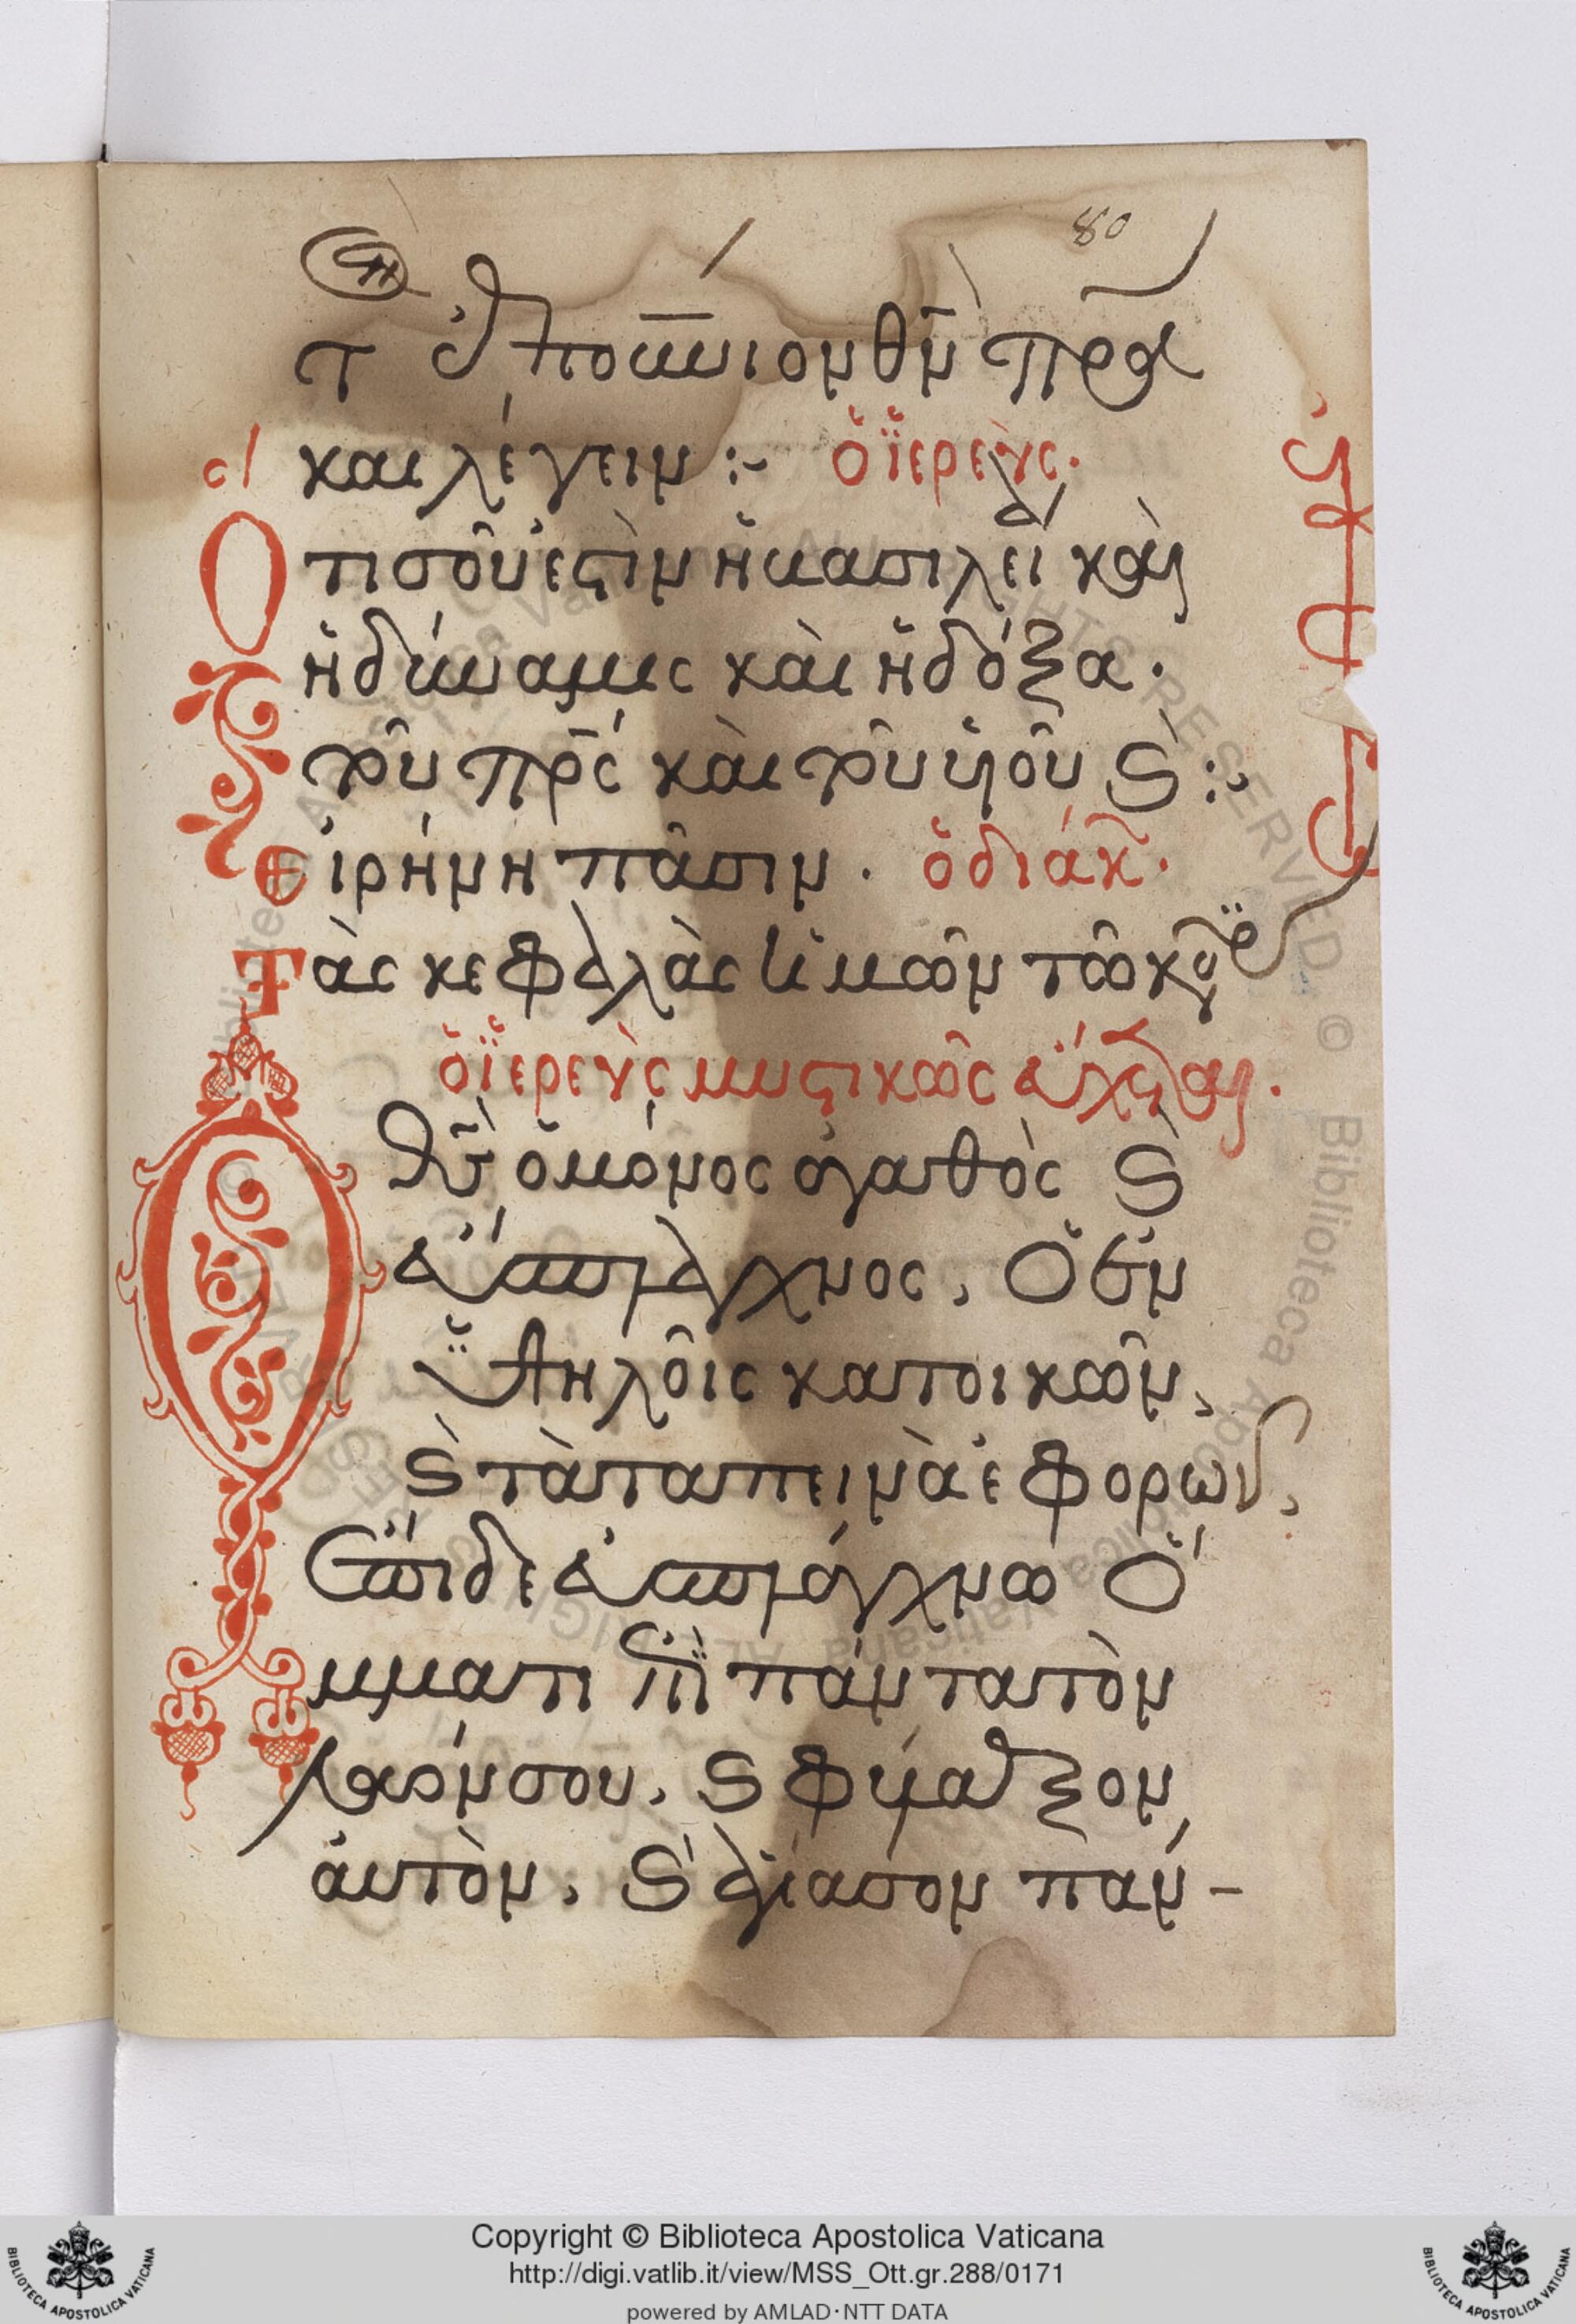 80
τ ἐπουνιον θν πρα
και λέγειν :~ ὁ ἱερεὺς.
Ὅτι σοῦ ἐστὶν ἡ βασιλεία καὶ
ἡ δύναμις καὶ ἡ δόξα.
τοῦ πρς καὶ τοῦ υἱοῦ ϛ :~
εἰρήνη πᾶσιν. ὁ διάκ.
Τὰς κεφαλὰς ὑμῶν τῶ κυρ
ὁ ἱερεὺς μυστικῶς εὔχεται.
Ὁ θς ὁ μόνος ἀγαθὸς ϛ
εὔσπλαγχνος, Ὁ ἐν
ὑψηλοῖς κατοικῶν,
ϛ τὰ ταπεινὰ ἐφορῶν,
Ἔπιδε εὐσπλάγχνω Ὄ
μματι ἐπὶ πάντα τὸν
λαόν σου, ϛ φύλαξον
αὐτὸν, ϛ ἀξίασον παν-
Copyright © Biblioteca Apostolica Vaticana
http://digi.vatlib.it/view/MSS_Ott.gr.288/0171
powered by AMLAD·NTT DATA
BIBLIOTECA APOSTOLICA VATICANA
BIBLIOTECA APOSTOLICA VATICANA